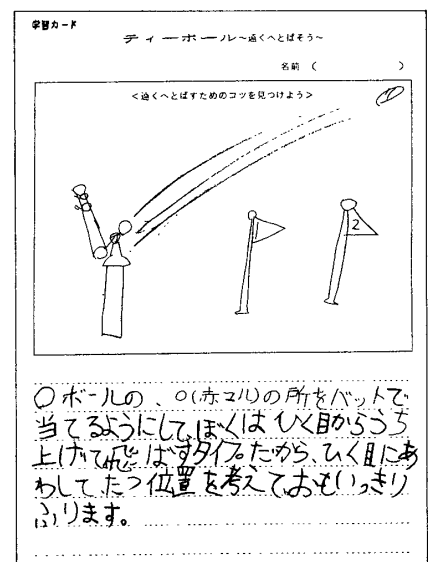 学習カード
ティーボール～遠くへとばそう～
名前（　　　　　　）
＜遠くへとばすためのコツを見つけよう＞
2
○ボールの、○(赤マル)の所をバットで
当てるようにして、ぼくはひく目からうち
上げて飛ばすタイプだから、ひく目にあ
わして、たつ位置を考えておもいっきり
ふります。